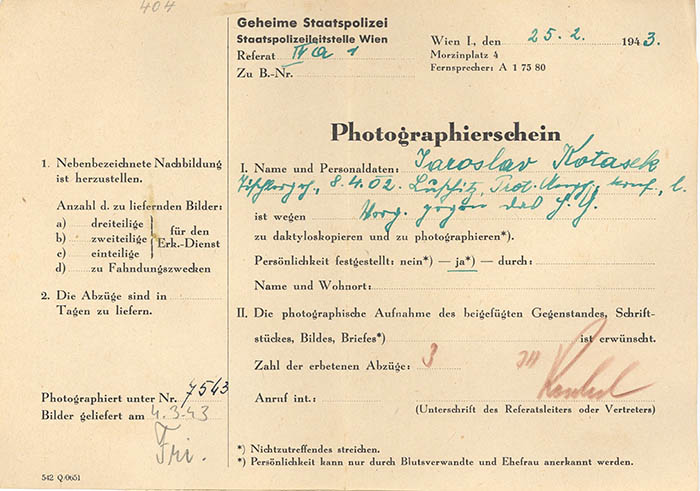 404
Geheime Staatspolizei
Staatspolizeileitstelle Wien
Referat IV a 1
Zu B.-Nr.
Wien I., den 25. 2. 1943.
Morzinplatz 4
Fernsprecher: A 1 75 80
Photographierschein
1. Nebenbezeichnete Nachbildung
ist herzustellen.
Anzahl d. zu liefernden Bilder:
a) dreiteilige
b) zweiteilige
c) einteilige
für den
Erk.-Dienst
d) zu Fahndungszwecken
2. Die Abzüge sind in
Tagen zu liefern.
Photographiert unter Nr. 7543
Bilder geliefert am 4.3.43
Fri.
542 Q/0651
I. Name und Personaldaten: Jaroslav Kotasek
Tischlergeh., 8.4.02. Prot. l.
ist wegen gegen das
zu daktyloskopieren und zu photographieren*).
Persönlichkeit festgestellt: nein*) — ja*) — durch:
Name und Wohnort:
II. Die photographische Aufnahme des beigefügten Gegenstandes, Schrift-
stückes, Bildes, Briefes*) ist erwünscht.
Zahl der erbetenen Abzüge: 3
Anruf int.:
(Unterschrift des Referatsleiters oder Vertreters)
*) Nichtzutreffendes streichen.
*) Persönlichkeit kann nur durch Blutsverwandte und Ehefrau anerkannt werden.